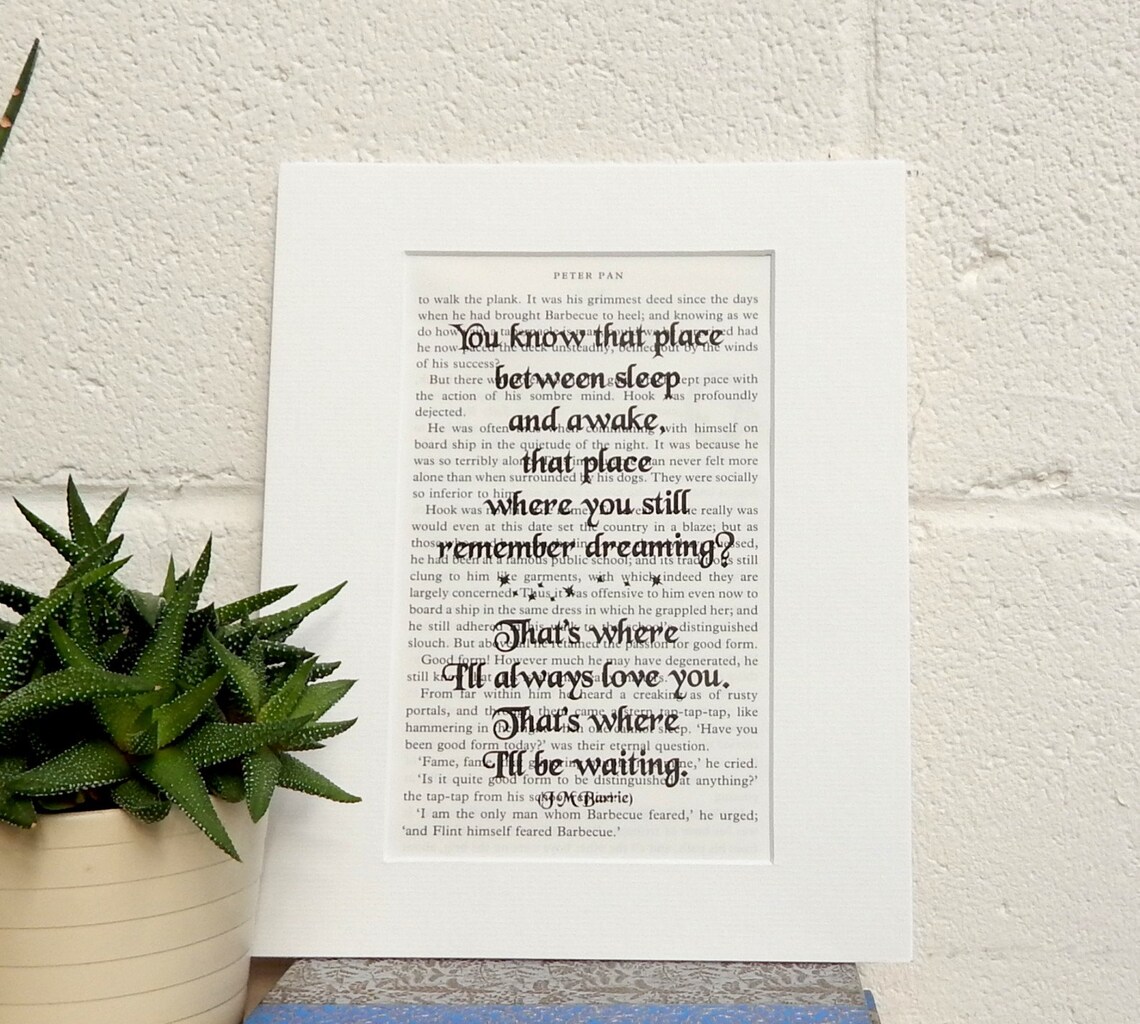 PETER PAN
You know that place
between sleep
and awake,
that place
where you still
remember dreaming?
That's where
I'll always love you.
That's where
I'll be waiting.
(J M Barrie)
to walk the plank. It was his grimmest deed since the days
when he had brought Barbecue to heel; and knowing as we
do how a tabernacle is had
he now paced the deck unsteadily, bellied out by the winds
of his success?
But there kept pace with
the action of his sombre mind. Hook was profoundly
dejected.
He was often thus when communing with himself on
board ship in the quietude of the night. It was because he
was so terribly alone. This man never felt more
alone than when surrounded by his dogs. They were socially
so inferior to him.
Hook was he really was
would even at this date set the country in a blaze; but as
those
he had been at a famous public school; and its traditions still
clung to him like garments, with which indeed they are
largely concerned. Thus it was offensive to him even now to
board a ship in the same dress in which he grappled her; and
he still adhered to the school's distinguished
slouch. But above all he retained the passion for good form.
Good form! However much he may have degenerated, he
still
From far within him he heard a creaking as of rusty
portals, and through them came a stern tap-tap-tap, like
hammering in the night when one cannot sleep. 'Have you
been good form today?' was their eternal question.
'Fame, he cried.
'Is it quite good form to be distinguished at anything?'
the tap-tap from his school
'I am the only man whom Barbecue feared,' he urged;
'and Flint himself feared Barbecue.'